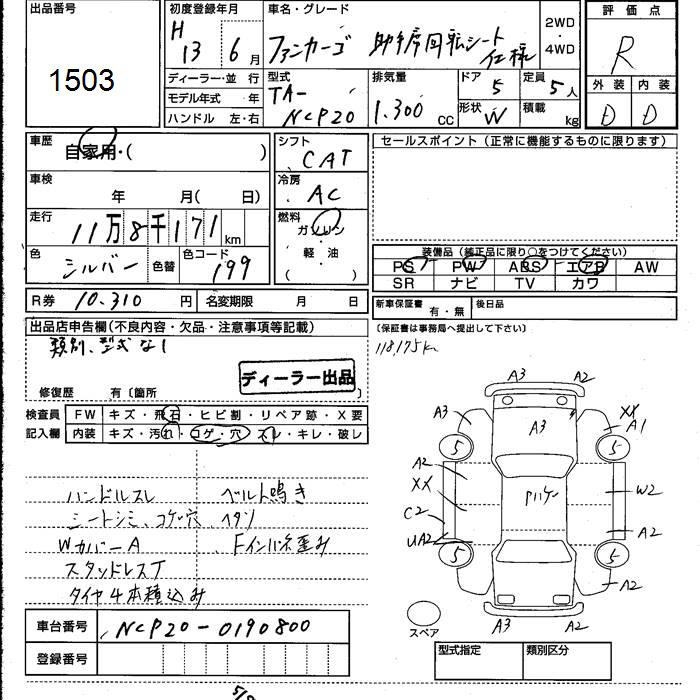 出品番号
1503
初度登録年月
H 13 6月
車名・グレード
ファンカーゴ 助手席回転シート仕様
2WD
・
4WD
評価点
R
外装 内装
D D
ディーラー・並行
モデル年式 年
ハンドル 左・右
型式
TA-
NCP20
排気量
1.300 cc
ドア
5
定員
5人
形状 W
積載 kg
車歴
自家用・( )
車検
年 月( 日)
走行
11万8千171 km
色
シルバー
色替
色コード
199
シフト
CAT
冷房
AC
燃料
ガソリン
・
軽・油
( )
セールスポイント(正常に機能するものに限ります)
装備品(純正品に限り○をつけてください)
PS PW ABS エアB AW
SR ナビ TV カワ
R券 10.310 円
名変期限 月 日
新車保証書 有・無
後日品
出品店申告欄(不良内容・欠品・注意事項等記載)
類別、型式なし
ディーラー出品
修復歴 有〔箇所
〔保証書は事務局へ提出して下さい〕
118,175km
検査員
記入欄
FW キズ・飛石・ヒビ割・リペア跡・X要
内装 キズ・汚れ・コゲ・穴・スレ・キレ・破レ
ハンドルスレ ベルト鳴き
シートシミ、コゲ穴 ヘタリ
WカバーA Fインパネ歪み
スタッドレスT
タイヤ4本積込み
A3 A2
A3 A3 XX
A1
5 5
A2
XX
W2
C2
UA2 A2
5 5
A2
A3 A2
スペア
車台番号 NCP20-0190800
登録番号
型式指定 類別区分